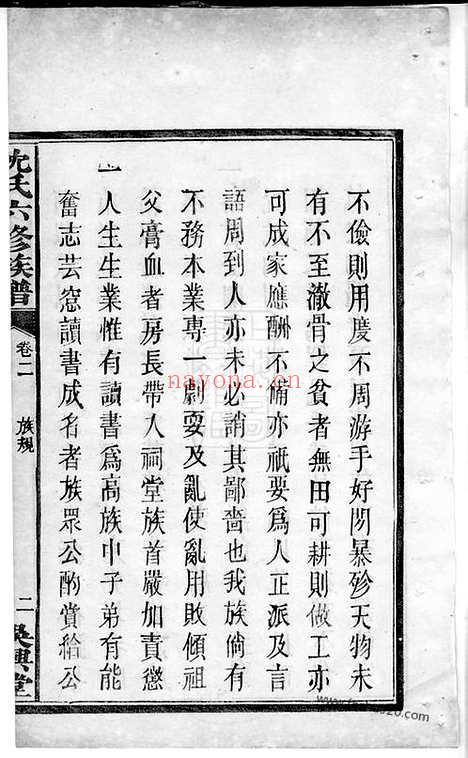 不儉則用度不周游手好閒暴殄天物未
有不至澈骨之貧者無田可耕則做工亦
可成家應酬不備亦祇要爲人正派及言
語周到人亦未必誚其鄙嗇也我族倘有
不務本業專一劇耍及亂使亂用敗傾祖
父膏血者房長帶入祠堂族首嚴加責懲
一人生生業惟有讀書爲高族中子弟有能
奮志芸窓讀書成名者族眾公酌賞給公
沈氏六修族譜
卷二
族規
二
吳興堂
nayona.cn